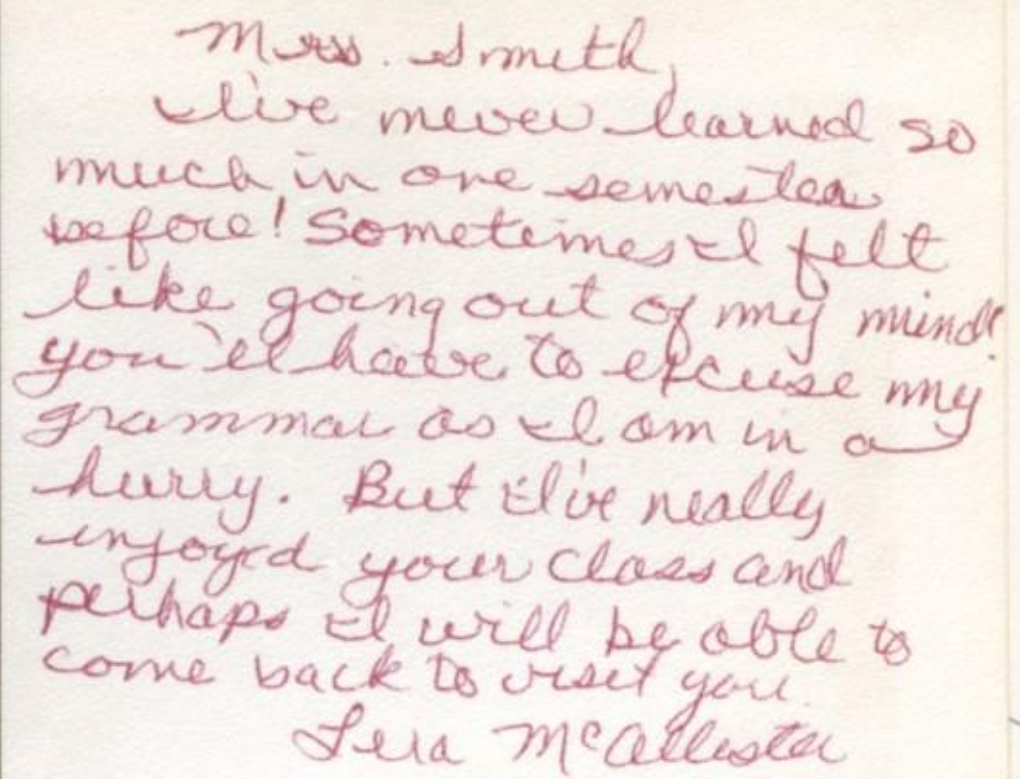 Mrs. Smith,
I've never learned so
much in one semester
before! Sometimes I felt
like going out of my mind!
you'll have to excuse my
grammar as I am in a
hurry. But I've really
enjoyed your class and
perhaps I will be able to
come back to visit you.
McAllister